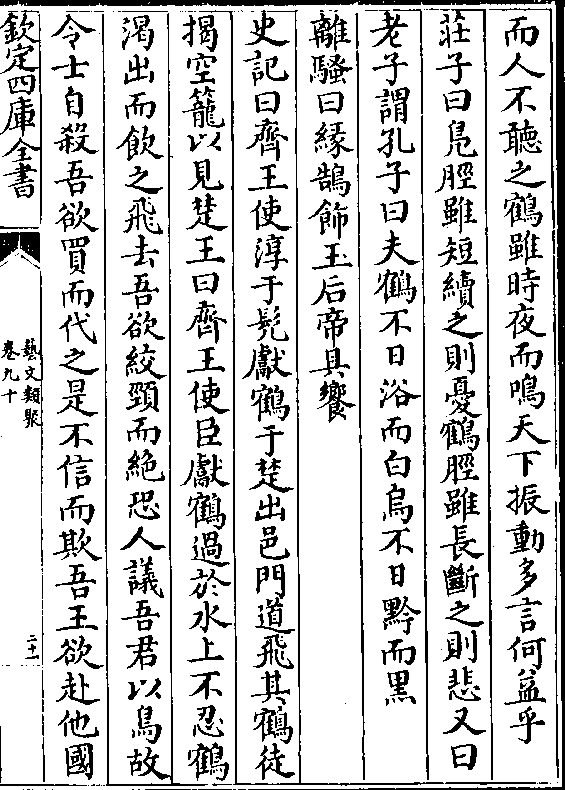 而人不聽之鶴雖時夜而鳴天下振動多言何益乎
莊子曰鳬脛雖短續之則憂鶴脛雖長斷之則悲又曰
老子謂孔子曰夫鶴不日浴而白烏不日黔而黒
離騷曰緣鵠飾玉后帝具饗
史記曰齊王使淳于髠獻鶴于楚出邑門道飛其鶴徒
揭空籠以見楚王曰齊王使臣獻鶴過於水上不忍鶴
渴出而飲之飛去吾欲絞頸而絶恐人議吾君以鳥故
令士自殺吾欲買而代之是不信而欺吾王欲赴他國
欽定四庫全書
藝文類聚
卷九十
二十一